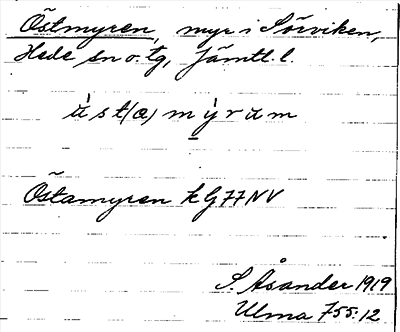 Östmyren, myr i Sörviken,
Hede sn o. tg, Jämtl. l.
ùst(a)mỳrum
Östamyren kG77NV
S. Åsander 1919
Ulma 755:12